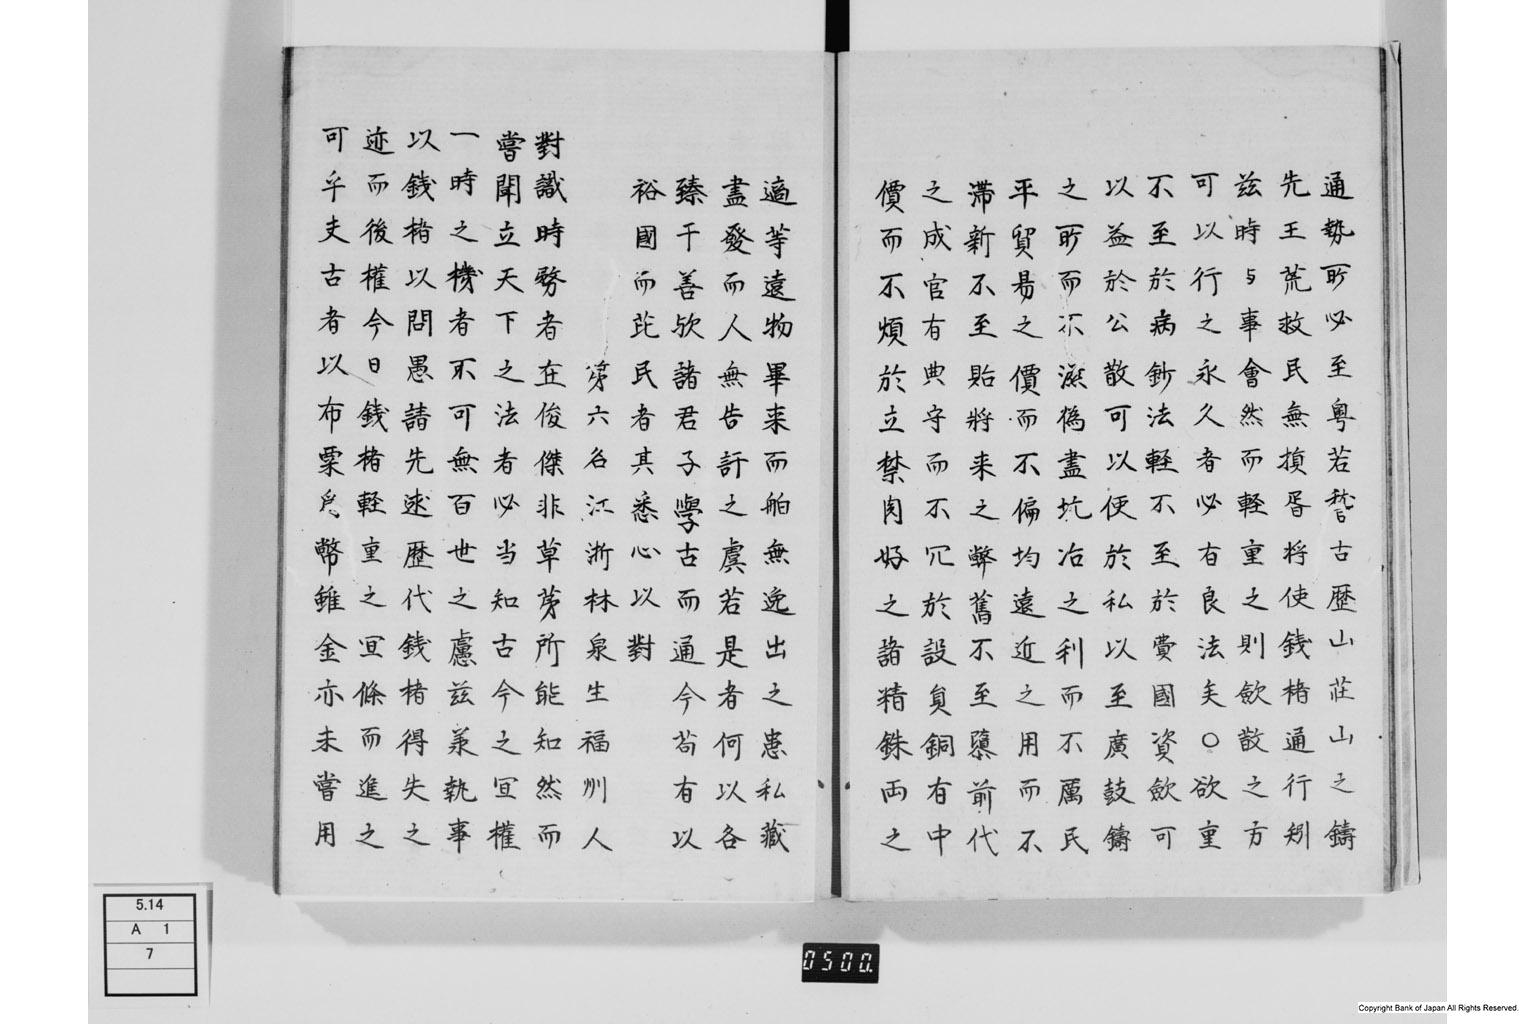 通勢所必至粤若嵆古歴山莊山之鑄
先王荒救民無損胥將使錢楮通行矧
茲時与事會然而軽重之則歛散之方
可以行之永久者必有良法矣○欲重
不至於病鈔法軽不至於費國資歛可
以益於公散可以便於私以至廣鼓鑄
之所而不濫偽盡坑冶之利而不厲民
平貿易之價而不偏均遠近之用而不
滯新不至貽將来之弊舊不至隳前代
之成官有典守而不冗於設貟銅有中
價而不煩於立禁肉好之諸精銖両之
適等遠物畢来而舶無逸出之患私藏
盡發而人無告訐之虞若是者何以各
臻于善欤諸君子學古而通今苟有以
裕國而芘民者其悉心以對
苐六名江浙林泉生福州人
對識時務者在俊傑非草茅所能知然而
嘗聞立天下之法者必当知古今之宜權
一時之機者不可無百世之慮茲羕執事
以錢楮以問愚請先述歴代錢楮得失之
迹而後權今日錢楮軽重之宜條而進之
可乎夫古者以布粟爲幣雖金亦未嘗用
5.14
A 1
7
0500.
Copyright Bank of Japan All Rights Reserved.